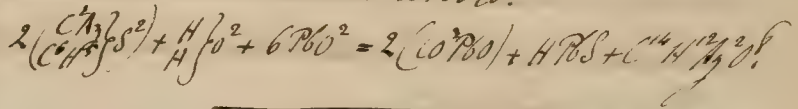 2(C²Az C⁶H⁵}S²) + H H}O² + 6PbO² = 2(CO²PbO) + HPbS + C¹⁴H¹²Az²O